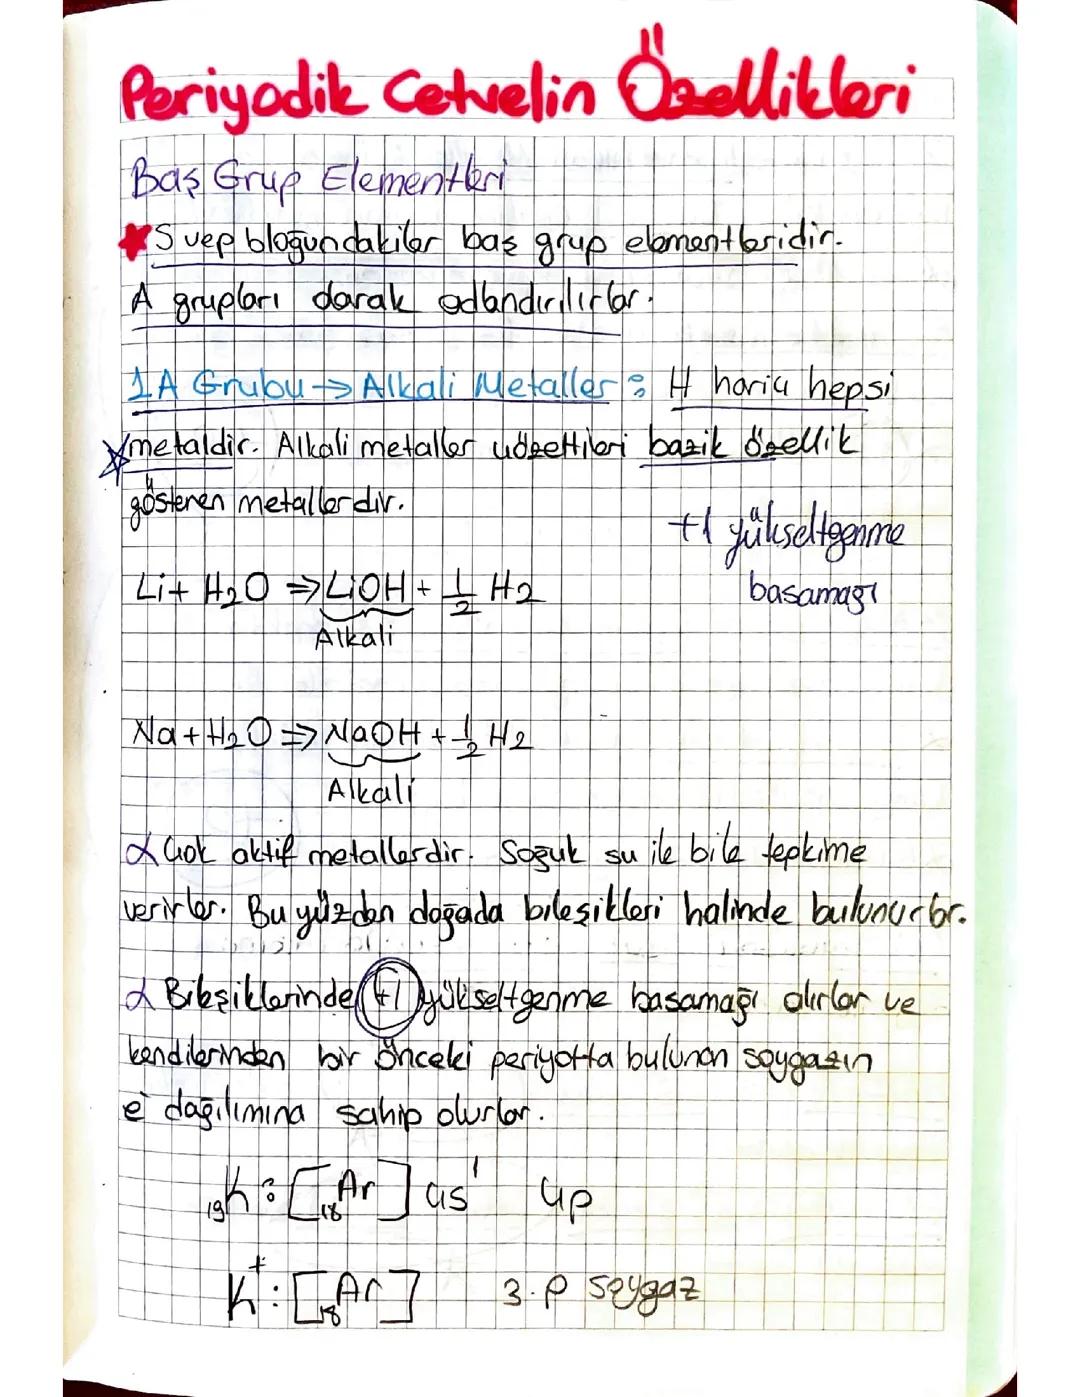 Periyodik Cetvelin Özellikleri
Baş Grup Elementleri
S ve p bloğundakiler baş grup elementleridir.
A grupları olarak adlandırılırlar.
1A Grubu → Alkali Metaller : H hariç hepsi
metaldir. Alkali metaller çözeltileri bazik özellik
gösteren metallerdir.
+1 yükseltgenme
basamağı
Li + H2O ⇒ LiOH + 1/2 H2
Alkali
Na + H2O ⇒ NaOH + 1/2 H2
Alkali
α Çok aktif metallerdir. Soğuk su ile bile tepkime
verirler. Bu yüzden doğada bileşikleri halinde bulunurlar.
α Bileşiklerinde +1 yükseltgenme basamağı alırlar ve
kendilerinden bir önceki periyotta bulunan soygazın
e⁻ dağılımına sahip olurlar.
19K : [18Ar] 4s¹ 4p
K⁺ : [18Ar] 3.p soygaz